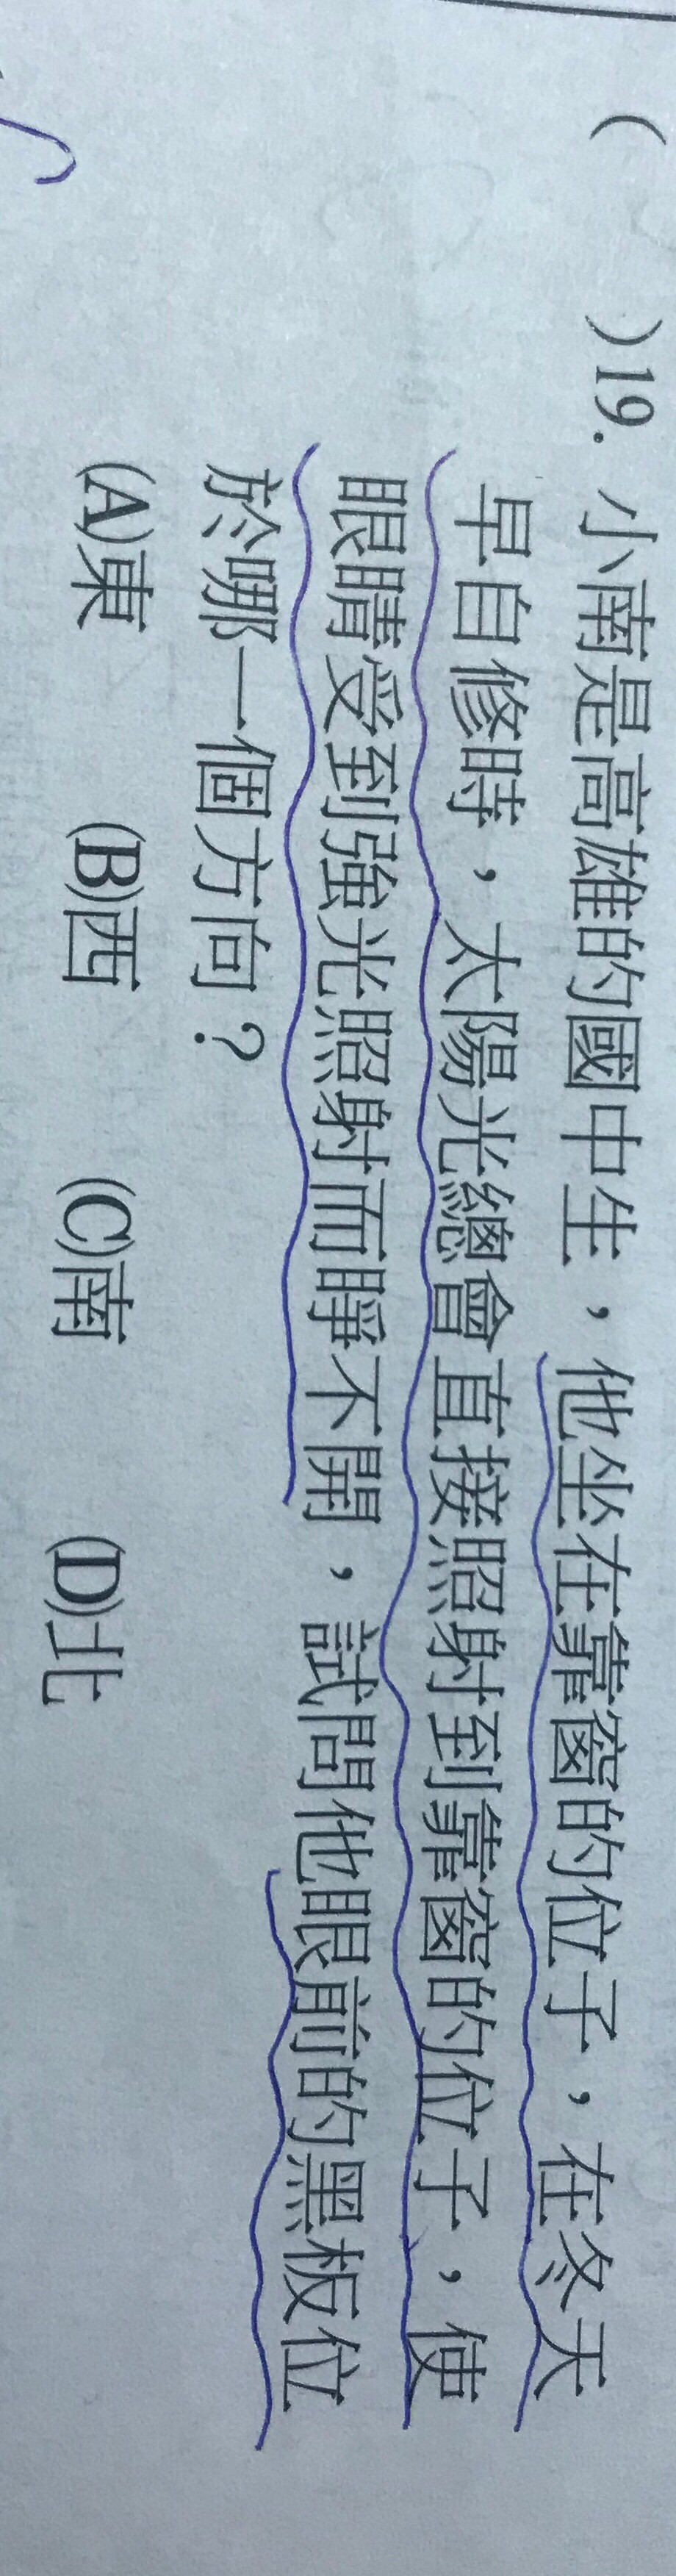 (　)19. 小南是高雄的國中生，他坐在靠窗的位子，在冬天
早自修時，太陽光總會直接照射到靠窗的位子，使
眼睛受到強光照射而睜不開，試問他眼前的黑板位
於哪一個方向？
(A)東　(B)西　(C)南　(D)北